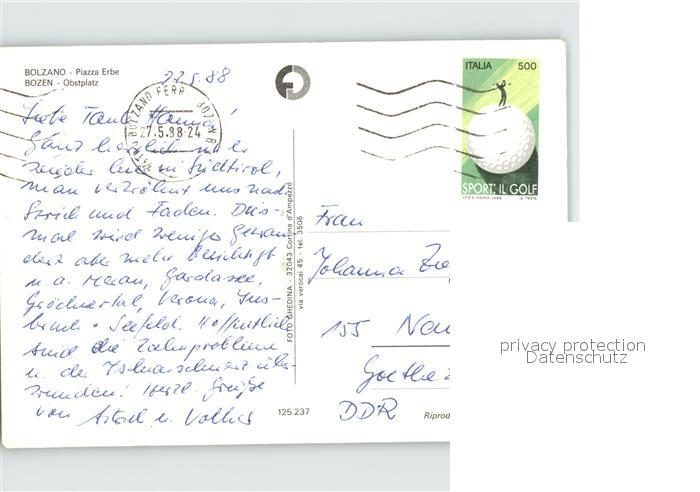 BOLZANO - Piazza Erbe
BOZEN - Obstplatz
27.5.88
BOLZANO FERR.
27.5.88-24
ITALIA 500
SPORT: IL GOLF
I.P.Z.S.-ROMA-1988 A. TESTA
Liebe Tante Hanna!
Ganz herzlich
wieder hier in Südtirol,
man verwöhnt uns nach
Strich und Faden. Dies-
mal wird weniger gewan-
dert aber mehr besichtigt
u. a. Meran, Gardasee,
Grödnertal, Verona, Inns-
bruck + Seefeld. Hoffentlich
sind die Zahnprobleme
u. der Ischiasschmerz über-
wunden! Herzl. Grüße
von Astrid u. Volker
FOTO GHEDINA - 32043 Cortina d'Ampezzo
via verocai 45 - tel. 3505
Frau
Johanna
155
Goethe
DDR
125.237
Riprod
privacy protection
Datenschutz